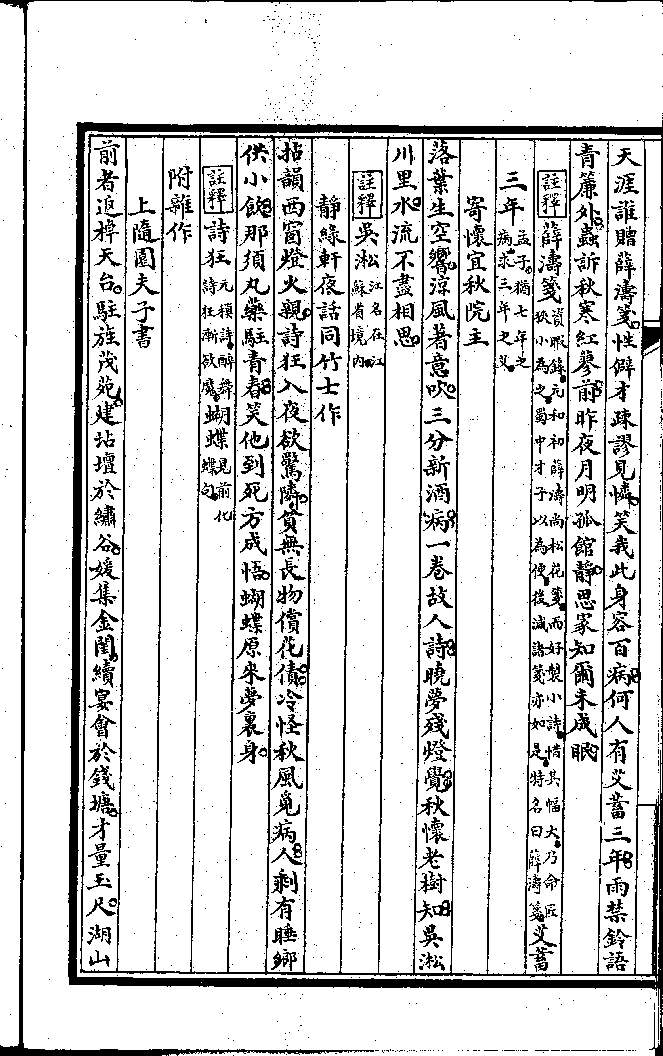 天涯誰贈薛濤箋性僻才疎謬見憐笑我此身容百病何人有艾蓄三年雨禁鈴語
青簾外蟲訴秋寒紅蓼前昨夜月明孤館靜思家知爾未成眠
註釋薛濤箋資暇錄元和初薛濤尚松花箋而好製小詩惜其幅大乃命匠狹小為之蜀中才子以為便後減諸箋亦如是特名曰薛濤箋艾蓄
三年孟子猶七年之病求三年之艾
寄懷宜秋院主
落葉生空響涼風著意吹三分新酒病一卷故人詩曉夢殘燈覺秋懷老樹知吳淞
川里水流不盡相思
註釋吳淞江名在江蘇省境內
靜緣軒夜話同竹士作
拈韻西窗燈火親詩狂入夜欲驚隣貧無長物償花債冷怪秋風覓病人剩有睡鄉
供小飲那須丸藥駐青春笑他到死方成悟蝴蝶原來夢裏身
註釋詩狂元稹詩醉舞詩狂漸欲魔蝴蝶見前化蝶句
附雜作
上隨園夫子書
前者迴棹天台駐旌茂苑建坫壇於繡谷媛集金閨續宴會於錢塘才量玉尺湖山